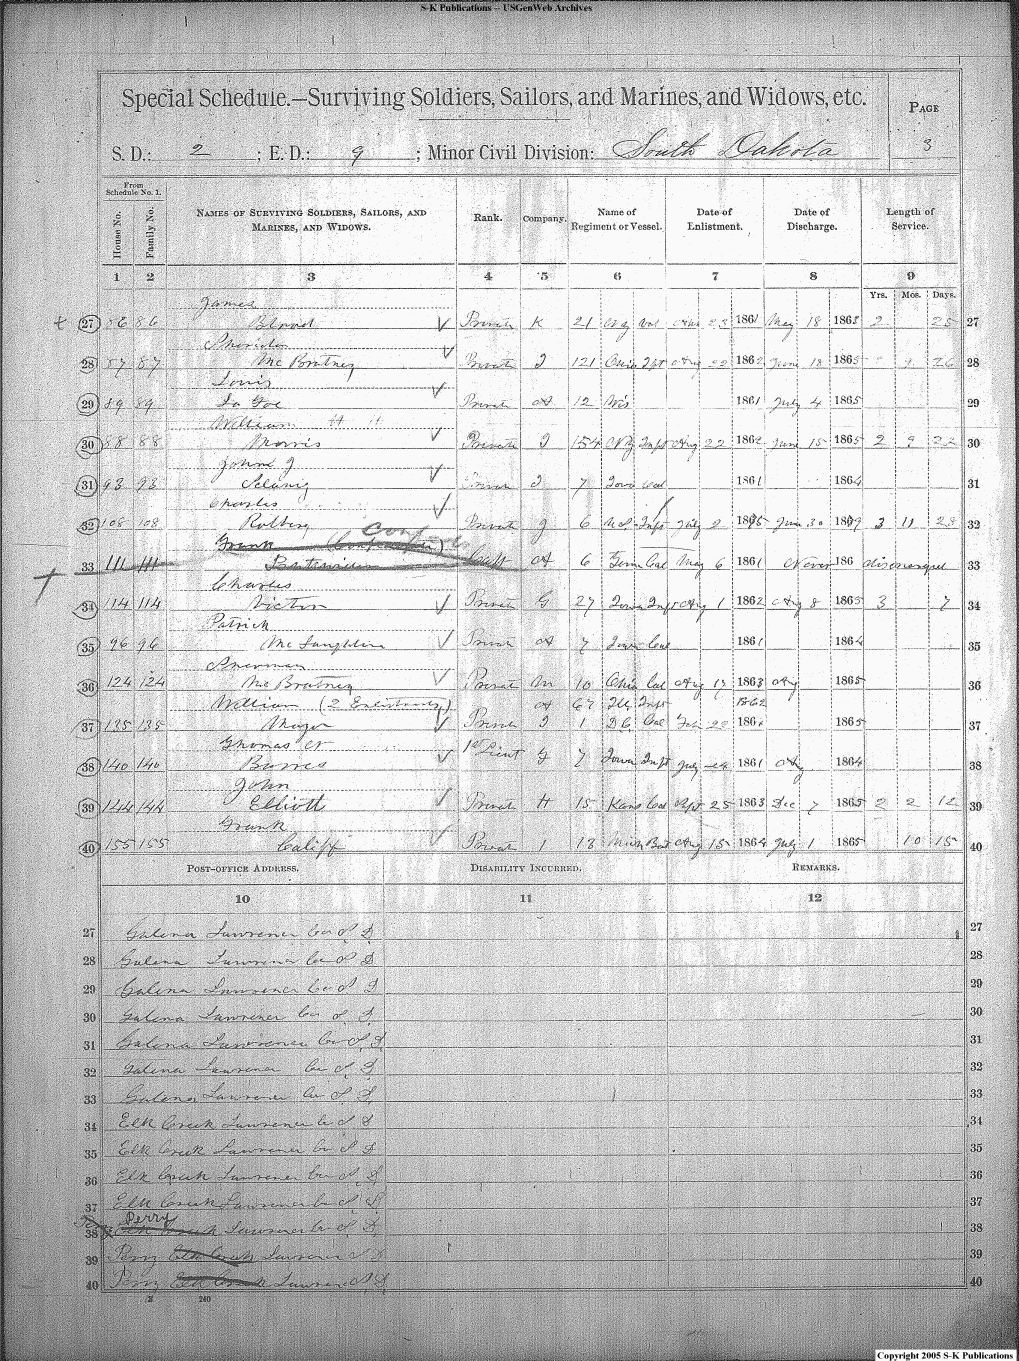 S-K Publications -- USGenWeb Archives
Special Schedule.—Surviving Soldiers, Sailors, and Marines, and Widows, etc.
PAGE
3
S. D.: 2 ; E. D.: 9 ; Minor Civil Division: South Dakota
From Schedule No. 1.
House No. Family No. NAMES OF SURVIVING SOLDIERS, SAILORS, AND MARINES, AND WIDOWS. Rank. Company. Name of Regiment or Vessel. Date of Enlistment. Date of Discharge. Length of Service.
1 2 3 4 5 6 7 8 9
Yrs. Mos. Days.
James
27 86 86 Private K 21 Vol 23 1861 May 18 1863 2 25 27
Sheridan
28 87 87 Mc Bratney Private I 121 Ohio Ipt Aug 22 1862 June 18 1865 9 26 28
Louis
29 89 89 Private A 12 Wis 1861 July 4 1865 29
William H H
30 88 88 Morris Private I 154 NY Inft Aug 22 1862 June 15 1865 2 9 22 30
John J
31 93 93 Private I 7 Iowa Cal 1861 1864 31
Charles
32 108 108 Private G 6 US Inft July 2 1865 Jun 30 1869 3 11 28 32
Frank Conf
33 111 111 Capt A 6 Cal May 6 1861 Never 186 discharged 33
Charles
34 114 114 Victor Private G 27 Iowa Inft Aug 1 1862 Aug 8 1865 3 7 34
Patrick
35 96 96 Mc Laughlin Private A 7 Iowa Cal 1861 1864 35
Sherman
36 124 124 Mc Bratney Private M 10 Ohio Cal Aug 17 1863 Aug 1865 36
William (2 Enlistments) A 67 Ills Inft 1862
37 135 135 Mayo Private I 1 D.C. Cal Feb 22 186 1865 37
Thomas
38 140 140 1st Lieut G 7 Iowa Inft July 24 1861 Aug 1864 38
John
39 144 144 Elliott Private H 15 Kans Cal Sept 25 1863 Dec 7 1865 2 2 12 39
Frank
40 155 155 Califf Private 1 13 Bat Aug 15 1864 July 1 1865 10 15 40
POST-OFFICE ADDRESS. DISABILITY INCURRED. REMARKS.
10 11 12
27 Galena Lawrence Co S D 27
28 Galena Lawrence Co S D 28
29 Galena Lawrence Co S D 29
30 Galena Lawrence Co S D 30
31 Galena Lawrence Co S D 31
32 Galena Lawrence Co S D 32
33 Galena Lawrence Co S D 33
34 Elk Creek Lawrence Co S D 34
35 Elk Creek Lawrence Co S D 35
36 Elk Creek Lawrence Co S D 36
37 Elk Creek Lawrence Co S D 37
Perry
38 Elk Creek Lawrence Co S D 38
39 Perry Elk Creek Lawrence S D 39
40 Perry Elk Creek Lawrence S D 40
240
Copyright 2005 S-K Publications